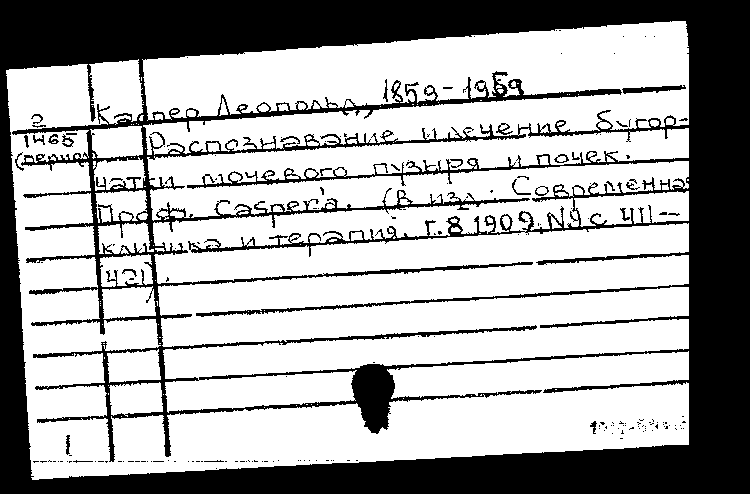 Каспер, Леопольд, 1859-1959
2
1465
(период)
Распознавание и лечение бугор-
чатки мочевого пузыря и почек.
Проф. Casper'a. (В изд.: Современная
клиника и терапия. г. 8 1909, N9 с 411—
421).
1